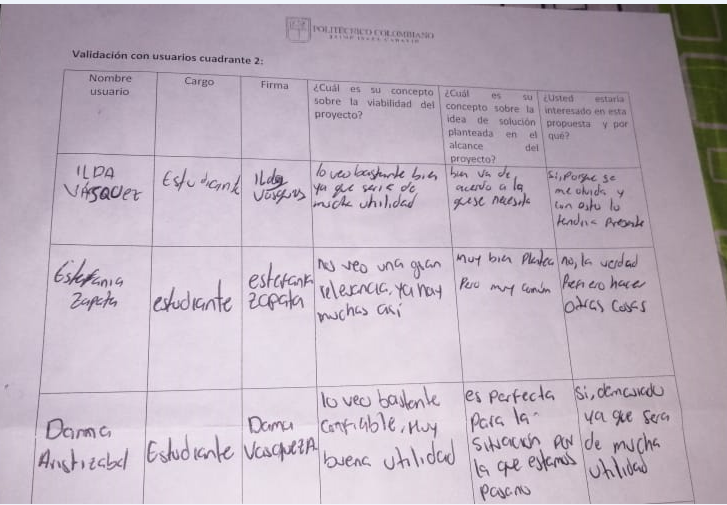 POLITÉCNICO COLOMBIANO
JAIME ISAZA CADAVID
Validación con usuarios cuadrante 2:
Nombre
usuario
Cargo
Firma
¿Cuál es su concepto
sobre la viabilidad del
proyecto?
¿Cuál es su
concepto sobre la
idea de solución
planteada en el
alcance del
proyecto?
¿Usted estaría
interesado en esta
propuesta y por
qué?
ILDA
VÁSQUEZ
Estudiante
Ilda
Vásquez
lo veo bastante bien
ya que sería de
mucha utilidad
bien va de
acuerdo a lo
que se necesita
Si, porque se
me olvida y
con esto lo
tendría presente
Estefania
Zapata
estudiante
estefania
zapata
no veo una gran
relevancia, ya hay
muchas así
muy bien
Pero muy común
no, la verdad
Prefiero hacer
otras cosas
Danna
Aristizabal
Estudiante
Danna
Vasquez A
lo veo bastante
confiable, muy
buena utilidad
es perfecta
para la
situación por
la que estamos
pasando
Si, demasiado
ya que sera
de mucha
utilidad